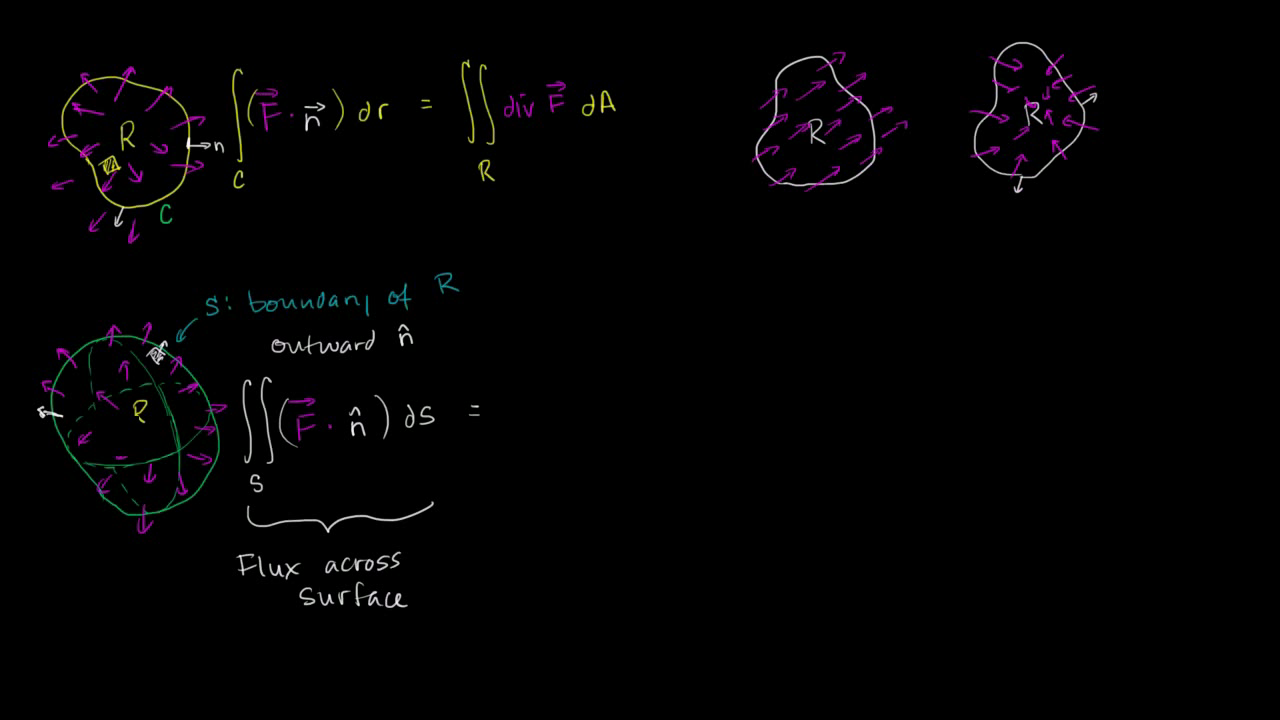 R n C
∫_C (F⃗ · n⃗) dr = ∬_R div F⃗ dA
R
R
S: boundary of R
outward n̂
R
∬_S (F⃗ · n̂) dS =
Flux across
surface